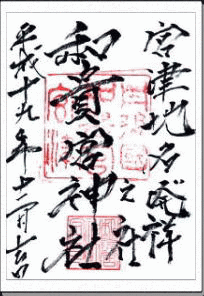 宮津地名発祥
之社
和貴宮神社
平成十九年十二月吉日